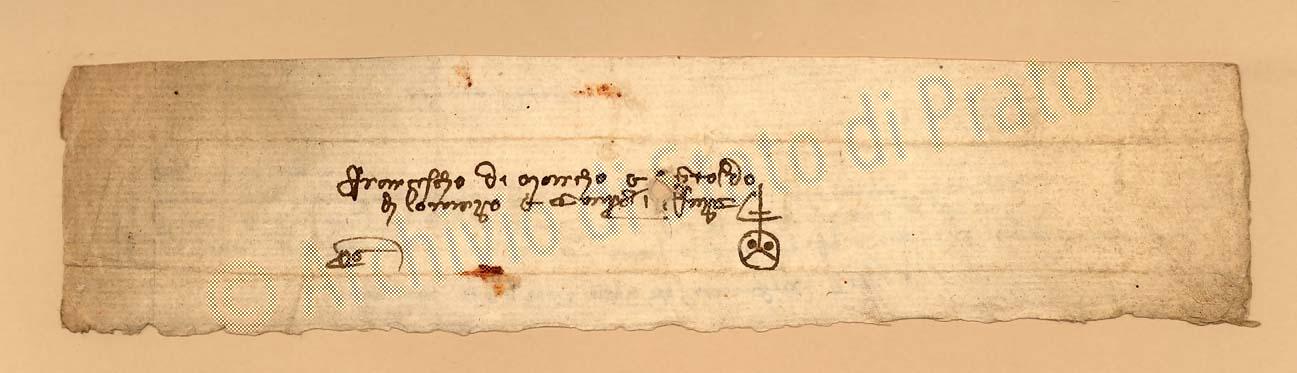 Francescho di Marcho e Stoldo
di Lorenzo e Comp
© Archivio di Stato di Prato